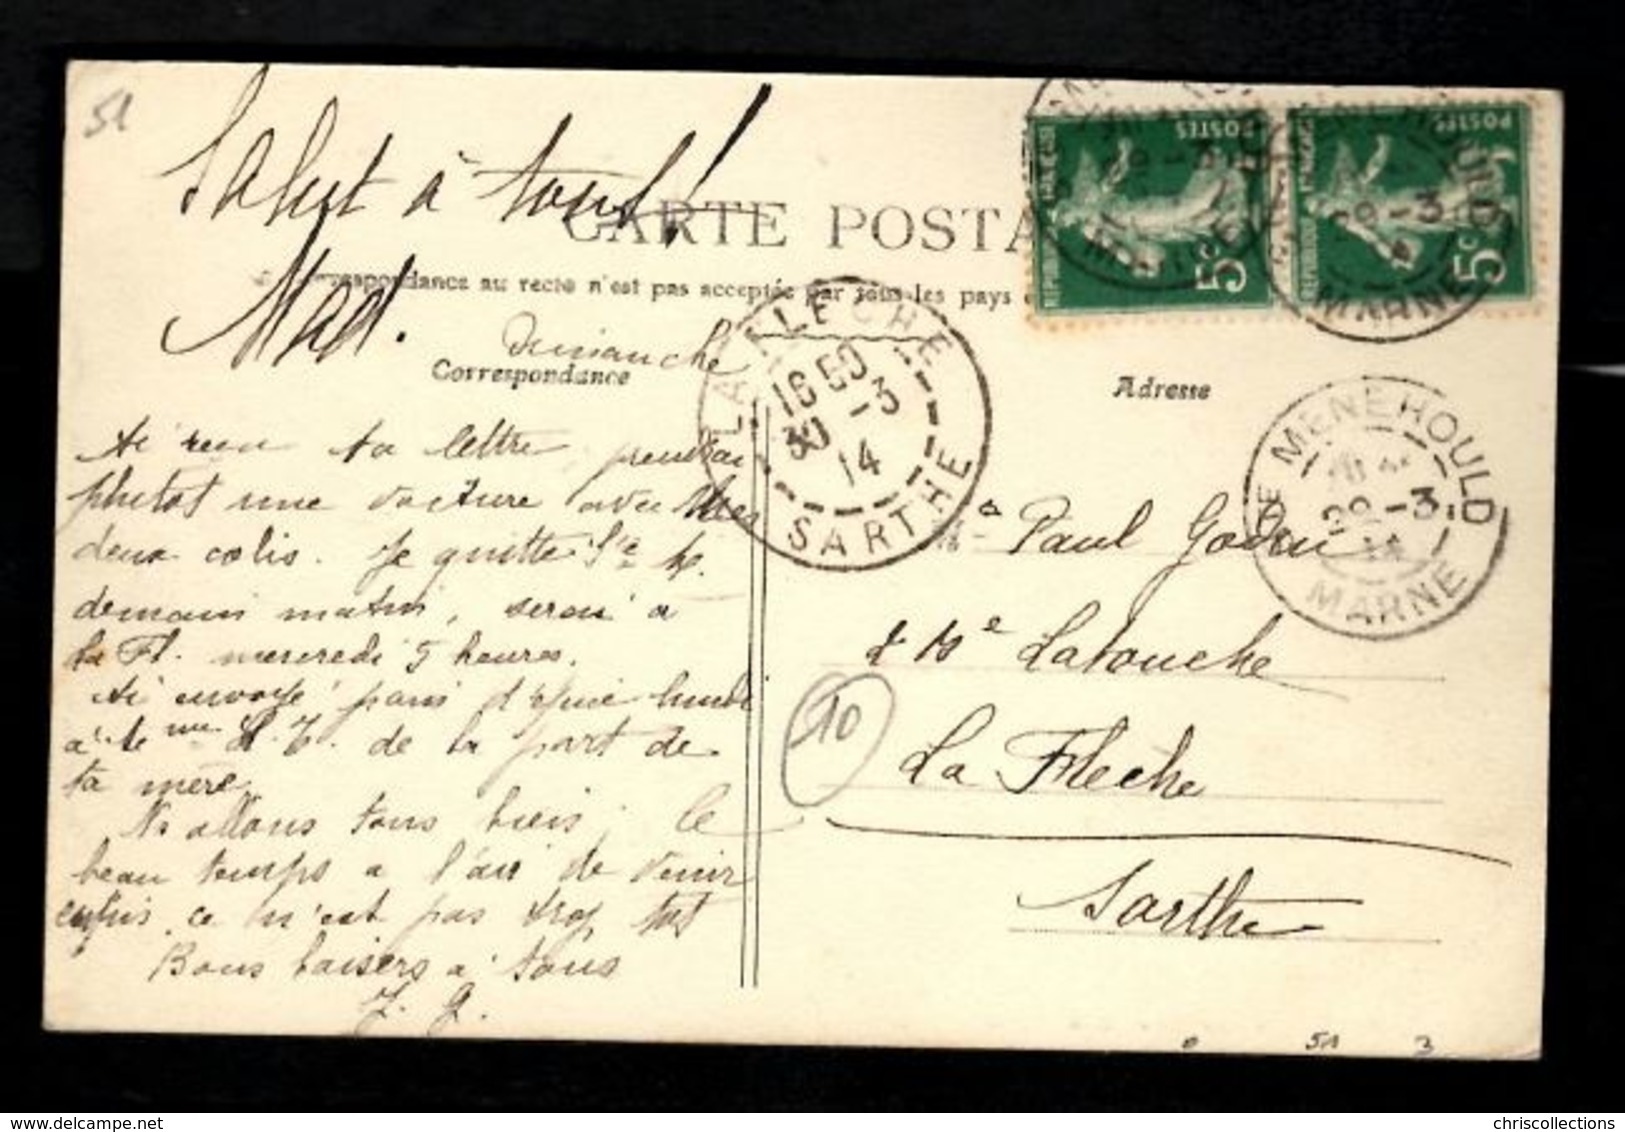 51
Salut à tous!
Mad.
CARTE POSTA
Correspondance au recto n'est pas acceptée par tous les pays
Dimanche
Correspondance
Adresse
POSTES
5c
POSTES
5c
29-3
MARNE
29-3
MARNE
LA FLECHE
16 50
30-3
14
SARTHE
STE MENEHOULD
29-3
14
MARNE
Ai reçu ta lettre prendrai
plutot une voiture avec mes
deux colis. Je quitte Ste M.
demain matin, serai à
La Fl. mercredi 5 heures.
Ai envoyé paris lundi
à de la part de
ta mère.
Ns allons tous bien; le
beau temps a l'air de venir
enfin, ce n'est pas trop tot
Bons baisers à tous
J. G.
à Paul
& Me Latouche
10
La Fleche
Sarthe
51 3
chriscollections